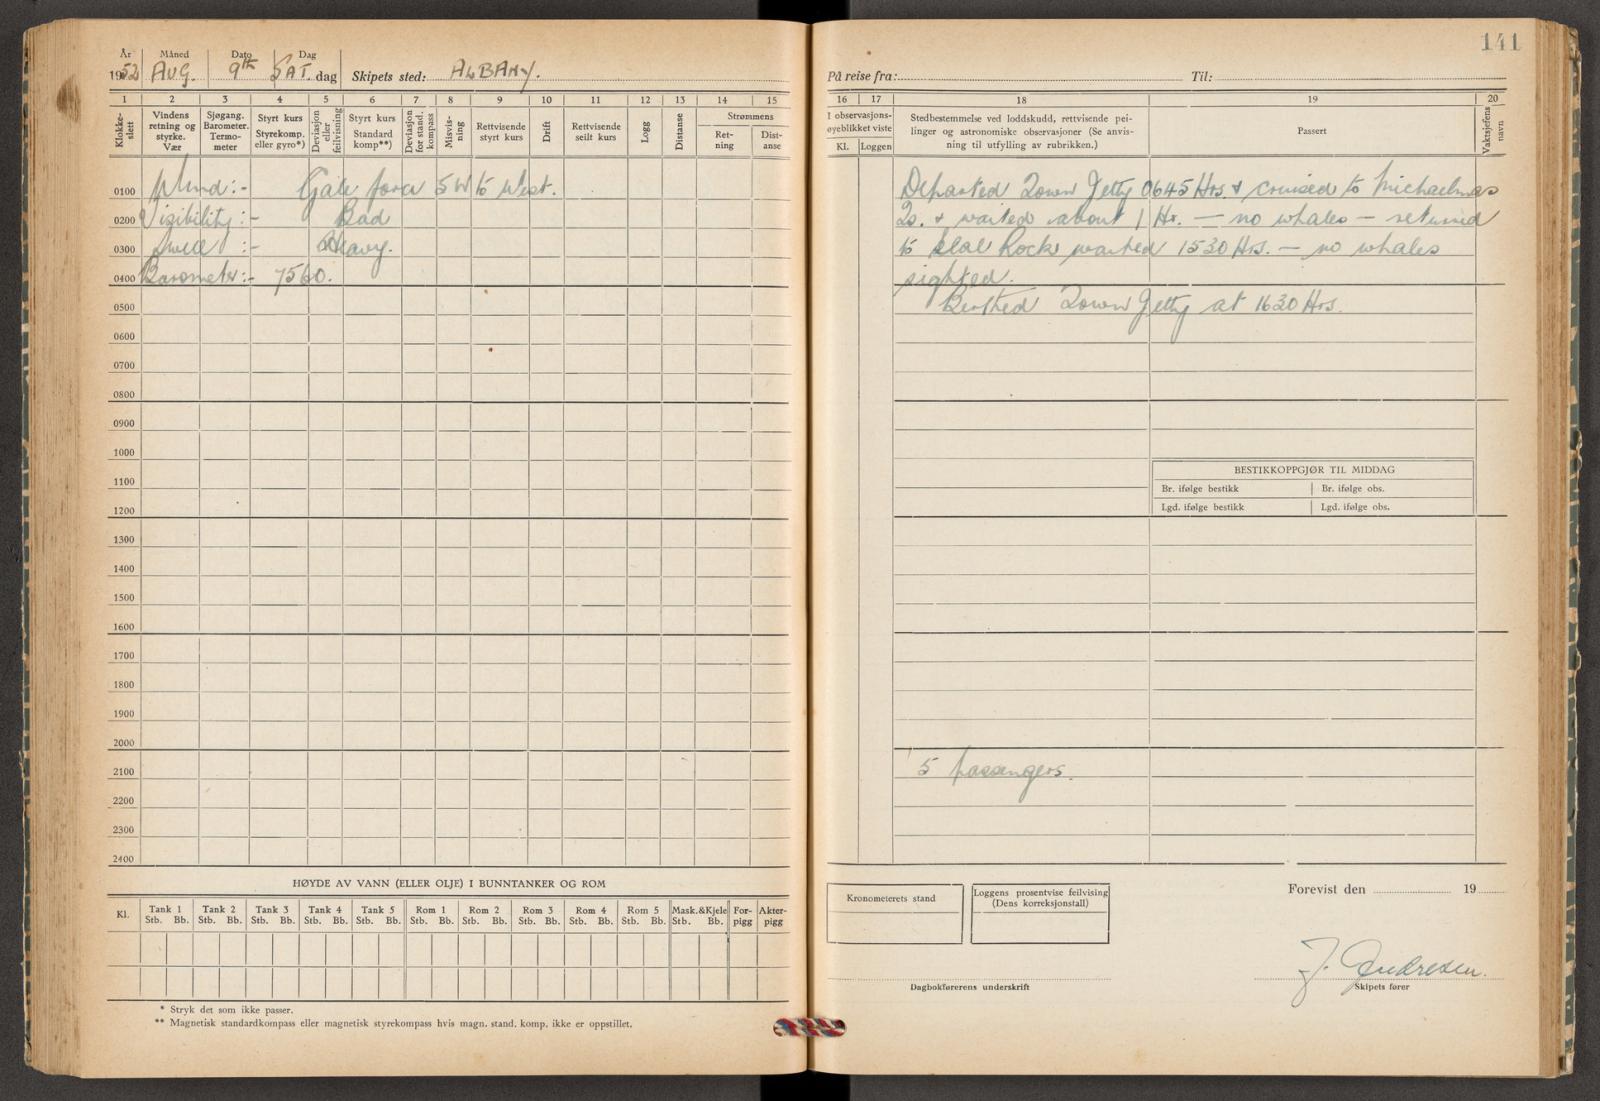 141
År Måned Dato Dag
1952 AUG. 9th SAT. dag Skipets sted: ALBANY.
På reise fra: Til:
1 2 3 4 5 6 7 8 9 10 11 12 13 14 15
Klokke-slett
Vindens retning og styrke. Vær
Sjøgang. Barometer. Termo-meter
Styrt kurs Styrekomp. eller gyro*)
Deviasjon eller feilvisning
Styrt kurs Standard komp**)
Deviasjon for stand. kompass
Misvis-ning
Rettvisende styrt kurs
Drift
Rettvisende seilt kurs
Logg
Distanse
Strømmens
Ret-ning
Dist-anse
16 17 18 19 20
I observasjons-øyeblikket viste
Kl. Loggen
Stedbestemmelse ved loddskudd, rettvisende pei-
linger og astronomiske observasjoner (Se anvis-
ning til utfylling av rubrikken.)
Passert
Vaktsjefens navn
0100 Wind:- Gale force SW to West.
0200 Visibility:- Bad
0300 Swell :- Heavy.
0400 Barometer:- 7560.
0500
0600
0700
0800
0900
1000
1100
1200
1300
1400
1500
1600
1700
1800
1900
2000
2100
2200
2300
2400
Departed Town Jetty 0645 Hrs. & cruised to Michaelmas
Is. & waited about 1 Hr. — no whales — returned
to Seal Rock waited 1530 Hrs. — no whales
sighted.
Berthed Town Jetty at 1630 Hrs.
BESTIKKOPPGJØR TIL MIDDAG
Br. ifølge bestikk Br. ifølge obs.
Lgd. ifølge bestikk Lgd. ifølge obs.
5 passengers.
HØYDE AV VANN (ELLER OLJE) I BUNNTANKER OG ROM
Kl. Tank 1 Tank 2 Tank 3 Tank 4 Tank 5 Rom 1 Rom 2 Rom 3 Rom 4 Rom 5 Mask.&Kjele For-pigg Akter-pigg
Stb. Bb. Stb. Bb. Stb. Bb. Stb. Bb. Stb. Bb. Stb. Bb. Stb. Bb. Stb. Bb. Stb. Bb. Stb. Bb. Stb. Bb.
* Stryk det som ikke passer.
** Magnetisk standardkompass eller magnetisk styrekompass hvis magn. stand. komp. ikke er oppstillet.
Kronometerets stand
Loggens prosentvise feilvising
(Dens korreksjonstall)
Forevist den 19
Dagbokførerens underskrift
J. Andresen.
Skipets fører